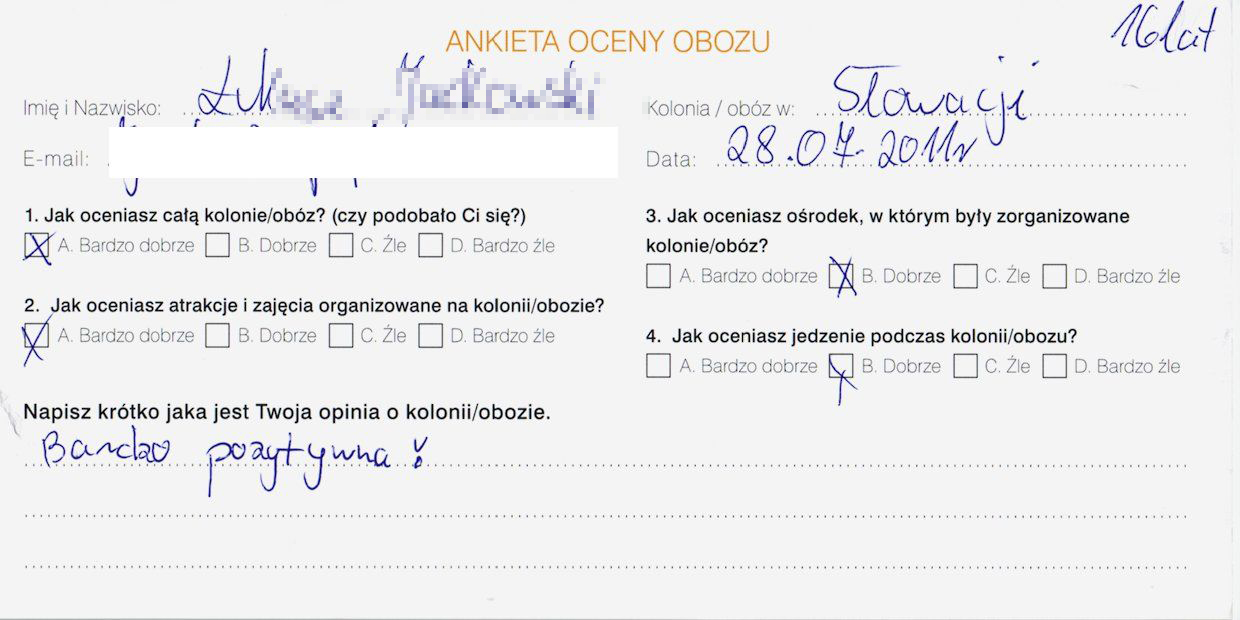 16 lat
ANKIETA OCENY OBOZU
Imię i Nazwisko:
Kolonia / obóz w: Słowacji
E-mail:
Data: 28.07.2011r
1. Jak oceniasz całą kolonie/obóz? (czy podobało Ci się?)
A. Bardzo dobrze B. Dobrze C. Źle D. Bardzo źle
2. Jak oceniasz atrakcje i zajęcia organizowane na kolonii/obozie?
A. Bardzo dobrze B. Dobrze C. Źle D. Bardzo źle
3. Jak oceniasz ośrodek, w którym były zorganizowane
kolonie/obóz?
A. Bardzo dobrze B. Dobrze C. Źle D. Bardzo źle
4. Jak oceniasz jedzenie podczas kolonii/obozu?
A. Bardzo dobrze B. Dobrze C. Źle D. Bardzo źle
Napisz krótko jaka jest Twoja opinia o kolonii/obozie.
Bardzo pozytywna!